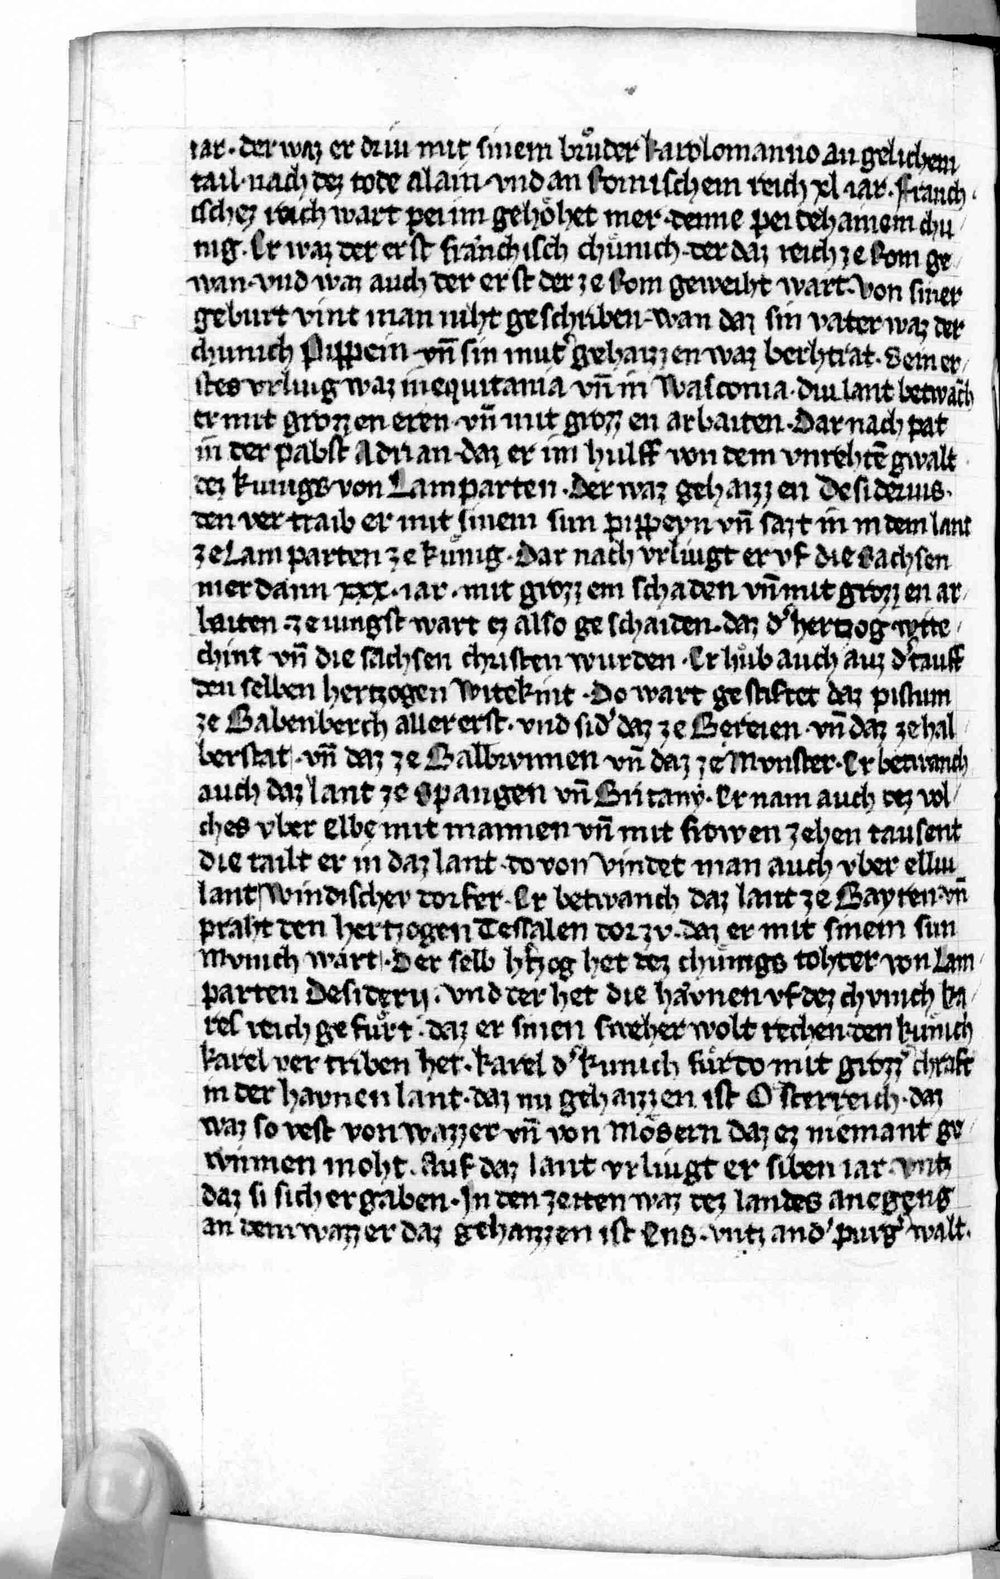 iar · der waz er driu mit sinem brůder karolomanno an gelichem
tail · nach dez tode alain · vnd an Romischem reich xl · iar · Franch
isches reich wart pei im gehöhet mer · denne pei dehainem chu
nig · Er waz der erst franchisch chůnich · der daz reich ze Rom ge
wan · vnd waz auch der erst der ze Rom geweiht wart · Von siner
geburt vint man niht geschriben · wan daz sin vater waz der
chunich Pippein · vn̄ sin mut' gehaizzen waz berhtrat · Sein er
stes vrliug waz in equitania vn̄ in Wasconia · diu lant betwāch
er mit grozzen eren · vn̄ mit grozzen arbaiten · Dar nach pat
in der pabst Adrian · daz er im hulff von dem vnrehtē gwalt
dez kunigs von Lamparten · Der waz gehaizzen Desiderius ·
den vertraib er mit sinem sun pippeyn vn̄ sazt in in dem lant
ze Lamparten ze kůnig · Dar nach vrliugt er vf die Sachsen
mer dann xxx · iar · mit grozzem schaden vn̄ mit grozzen ar
baiten · ze iungst wart ez also geschaiden · daz d' hertzog wite
chint vn̄ die sachsen christen wurden · Er hůb auch auz d' tauff
den selben hertzogen Witekint · Do wart gestiftet daz pistum
ze Babenberch aller erst · vnd sid' daz ze Bereien · vn̄ daz ze hal
berstat · vn̄ daz ze Balbrunnen vn̄ daz ze Mvnster · Er betwanch
auch daz lant ze Spangen vn̄ Britany · Er nam auch dez vol
ches vber Elbe mit mannen vn̄ mit frowen zehen tausent
die tailt er in daz lant · do von vindet man auch vber elliu
lant Windischer dorfer · Er betwanch daz lant ze Bayren · vn̄
praht den hertzogen Tessalen dor zv · daz er mit sinem sun
mvnich wart · Der selb h'tzog het dez chůnigs tohter von Lam
parten Desiderij · vnd der het die havnen vf dez chvnich ka
rels reich gefůrt · daz er sinen sweher wolt rechen · den kůnich
karel vertriben het · karel d' kunich fůr do mit grozz' chraft
in der havnen lant · daz nu gehaizzen ist Osterreich · daz
waz so vest von wazzer vn̄ von mösern daz ez niemant ge
winnen moht · Auf daz lant vrliugt er siben iar · vntz
daz si sich ergaben · In den zeiten waz dez landes anegeng
an dem wazzer daz gehaizzen ist Ens · vntz an d' purg' walt ·